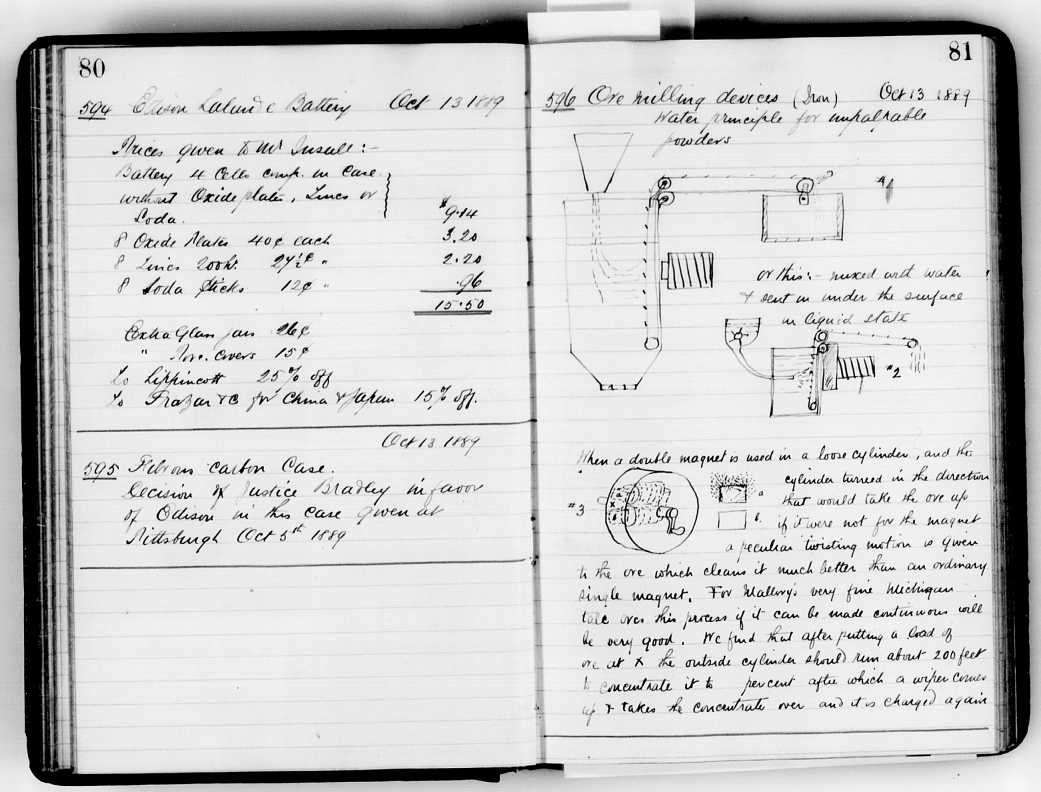 80
594 Edison Lalande Battery Oct 13 1889
Prices given to Mr Insull :-
Battery 4 Cells comp. in Case
without Oxide plates, Zincs or
Soda. $9.14
8 Oxide Plates 40¢ each 3.20
8 Zincs 27½¢ " 2.20
8 Soda Sticks 12¢ " .96
15.50
Extra Glass jars 26¢
" Covers 15¢
To Lippincott 25% off
To Frazar & C for China & Japan 15% off.
Oct 13 1889
595 Fibrous Carbon Case.
Decision of Justice Bradley in favor
of Edison in this case given at
Pittsburgh Oct 5th 1889
81
596 Ore Milling devices (Iron) Oct 13 1889
Water principle for impalpable
powders
#1
or this:- mixed with water
& sent in under the surface
in liquid state
#2
When a double magnet is used in a loose cylinder, and the
cylinder turned in the direction
#3
that would take the ore up
if it were not for the magnet
a peculiar twisting motion is given
to the ore which cleans it much better than an ordinary
single magnet. For Mallory's very fine Michigan
talc ores this process if it can be made continuous will
be very good. We find that after putting a load of
ore at x the outside cylinder should run about 200 feet
to concentrate it to percent after which a wiper comes
up & takes the concentrate over and it is charged again